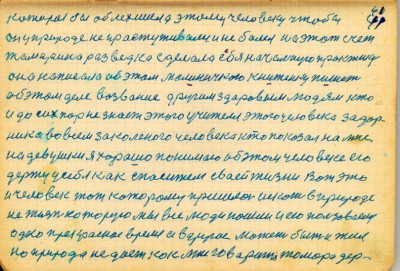 которая бы облехшила этому человеку чтобы
он у природе не простуживался и не болел на этот счет
Тамарина разведка сделала себя начальную практику
она написала об этом маленичкою книжечку пишет
об этом деле возвание другим здоровым людям кто
и до сих пор не знает этого учителя этого человека задор-
ника во всем закаленого человека кто показал на мне
на девушки я хорошо понимаю об этом человеке его
держу у себя как спасителя своей жизни Вот это
и человек тот которому пришлось искать в природе
не жизн которую мы все люди пошли и его
одно прекрасное время и вдруг может быть и жил
но природа не дает как мы говорить Тамара дер-